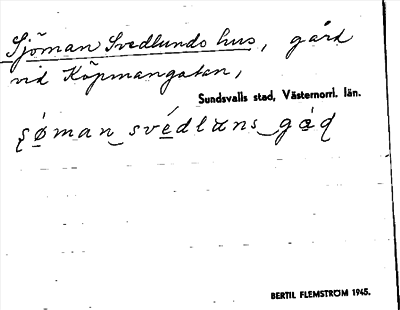 Sjöman Svedlunds hus, gård
vid Köpmangatan,
Sundsvalls stad, Västernorrl. län.
ʂǿman‿svédlɑns‿gɑ́ɖ
BERTIL FLEMSTRÖM 1945.